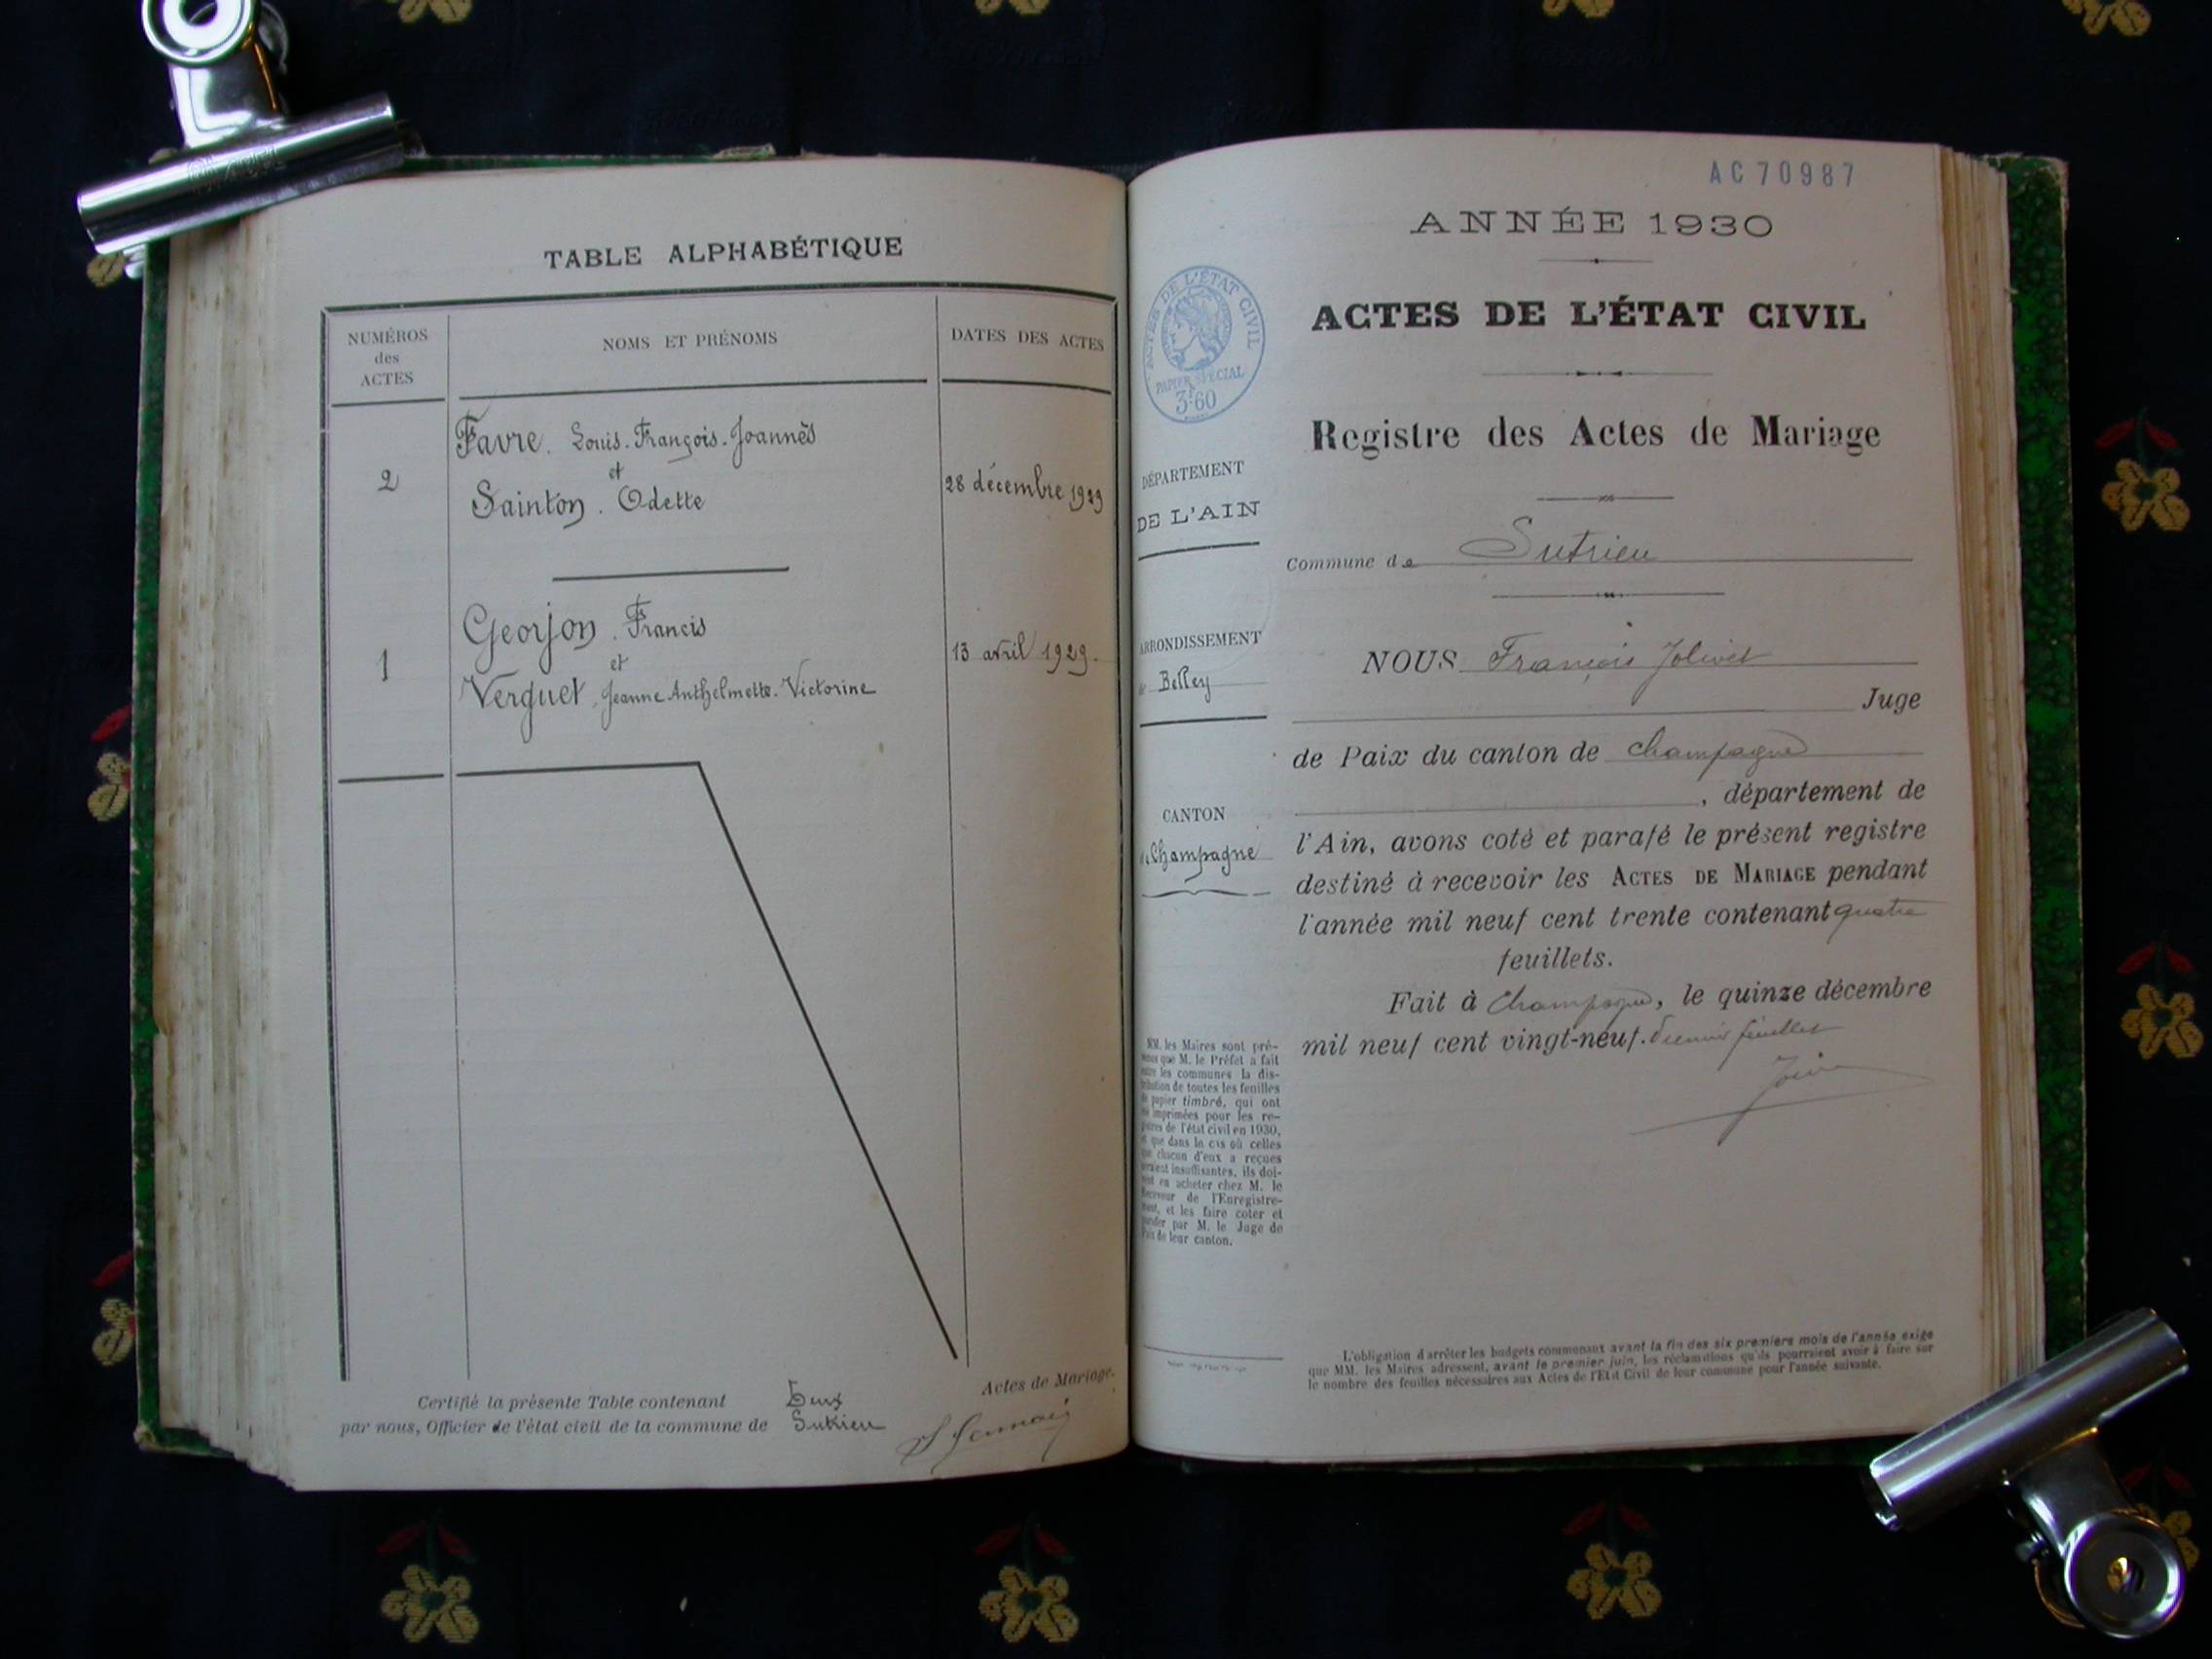 TABLE ALPHABÉTIQUE
NUMÉROS
des
ACTES
NOMS ET PRÉNOMS
DATES DES ACTES
2
Favre. Louis. François. Joannès
et
Sainton. Odette
28 décembre 1929
1
Georjon. Francis
et
Verguet, Jeanne Anthelmette. Victorine
13 avril 1929.
Certifié la présente Table contenant Deux Actes de Mariage.
par nous, Officier de l'état civil de la commune de Sutrieu
AC 70987
ANNÉE 1930
ACTES DE L'ÉTAT CIVIL
ACTES DE L'ÉTAT CIVIL
PAPIER SPÉCIAL
3f.60
Registre des Actes de Mariage
DÉPARTEMENT
DE L'AIN
Commune de Sutrieu
ARRONDISSEMENT
de Belley
NOUS François Jolivet
Juge
de Paix du canton de Champagne
, département de
CANTON
de Champagne
l'Ain, avons coté et parafé le présent registre
destiné à recevoir les ACTES DE MARIAGE pendant
l'année mil neuf cent trente contenant quatre
feuillets.
Fait à Champagne, le quinze décembre
mil neuf cent vingt-neuf. Premier feuillet
MM. les Maires sont pré-
venus que M. le Préfet a fait
entre les communes la dis-
tribution de toutes les feuilles
de papier timbré, qui ont
été imprimées pour les re-
gistres de l'état civil en 1930,
et que dans le cas où celles
que chacun d'eux a reçues
seraient insuffisantes, ils doi-
vent en acheter chez M. le
Receveur de l'Enregistre-
ment, et les faire coter et
parafer par M. le Juge de
Paix de leur canton.
L'obligation d'arrêter les budgets communaux avant la fin des six premiers mois de l'année exige
que MM. les Maires adressent, avant le premier juin, les réclamations qu'ils pourraient avoir à faire sur
le nombre des feuilles nécessaires aux Actes de l'État Civil de leur commune pour l'année suivante.